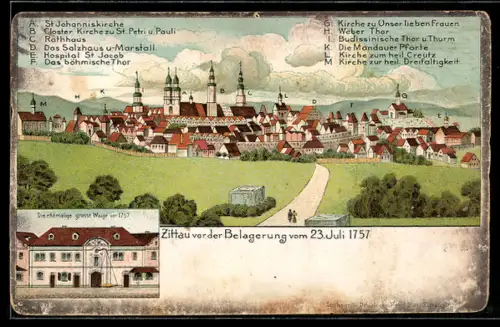 A. St Johanniskirche
B. Closter Kirche zu St. Petri u. Pauli
C. Rathhaus
D. Das Salzhaus u-Marstall
E. Hospital St Jacob
F. Das böhmische Thor
G. Kirche zu Unser lieben Frauen
H. Weber Thor
I. Budissinische Thor u. Thurm
K. Die Mandauer Pforte
L. Kirche zum heil. Creutz
M. Kirche zur heil. Dreifaltigkeit.
Die ehemalige grosse Waage vor 1757
Zittau vor der Belagerung vom 23. Juli 1757